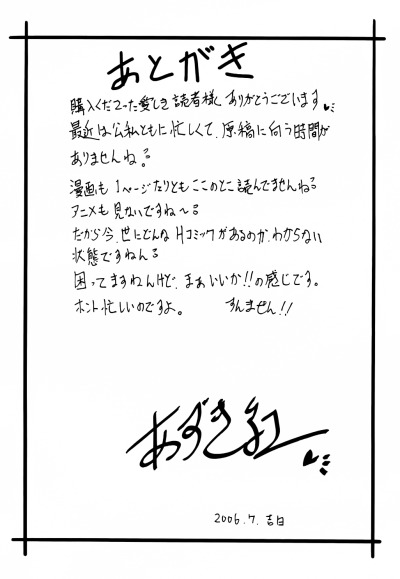 あとがき
購入くださった愛しき読者様、ありがとうございます♥
最近は公私ともに忙しくて、原稿に向う時間が
ありませんね。
漫画も1ページたりともここのとこ読んでませんねぇ
アニメも見ないですね〜
だから今、世にどんなHコミックがあるのか、わからない
状態ですねん
困ってますねんけど、まぁいいか!!の感じです。
ホント忙しいのですよ。 すんません!!
あずき紅
2006.7.吉日